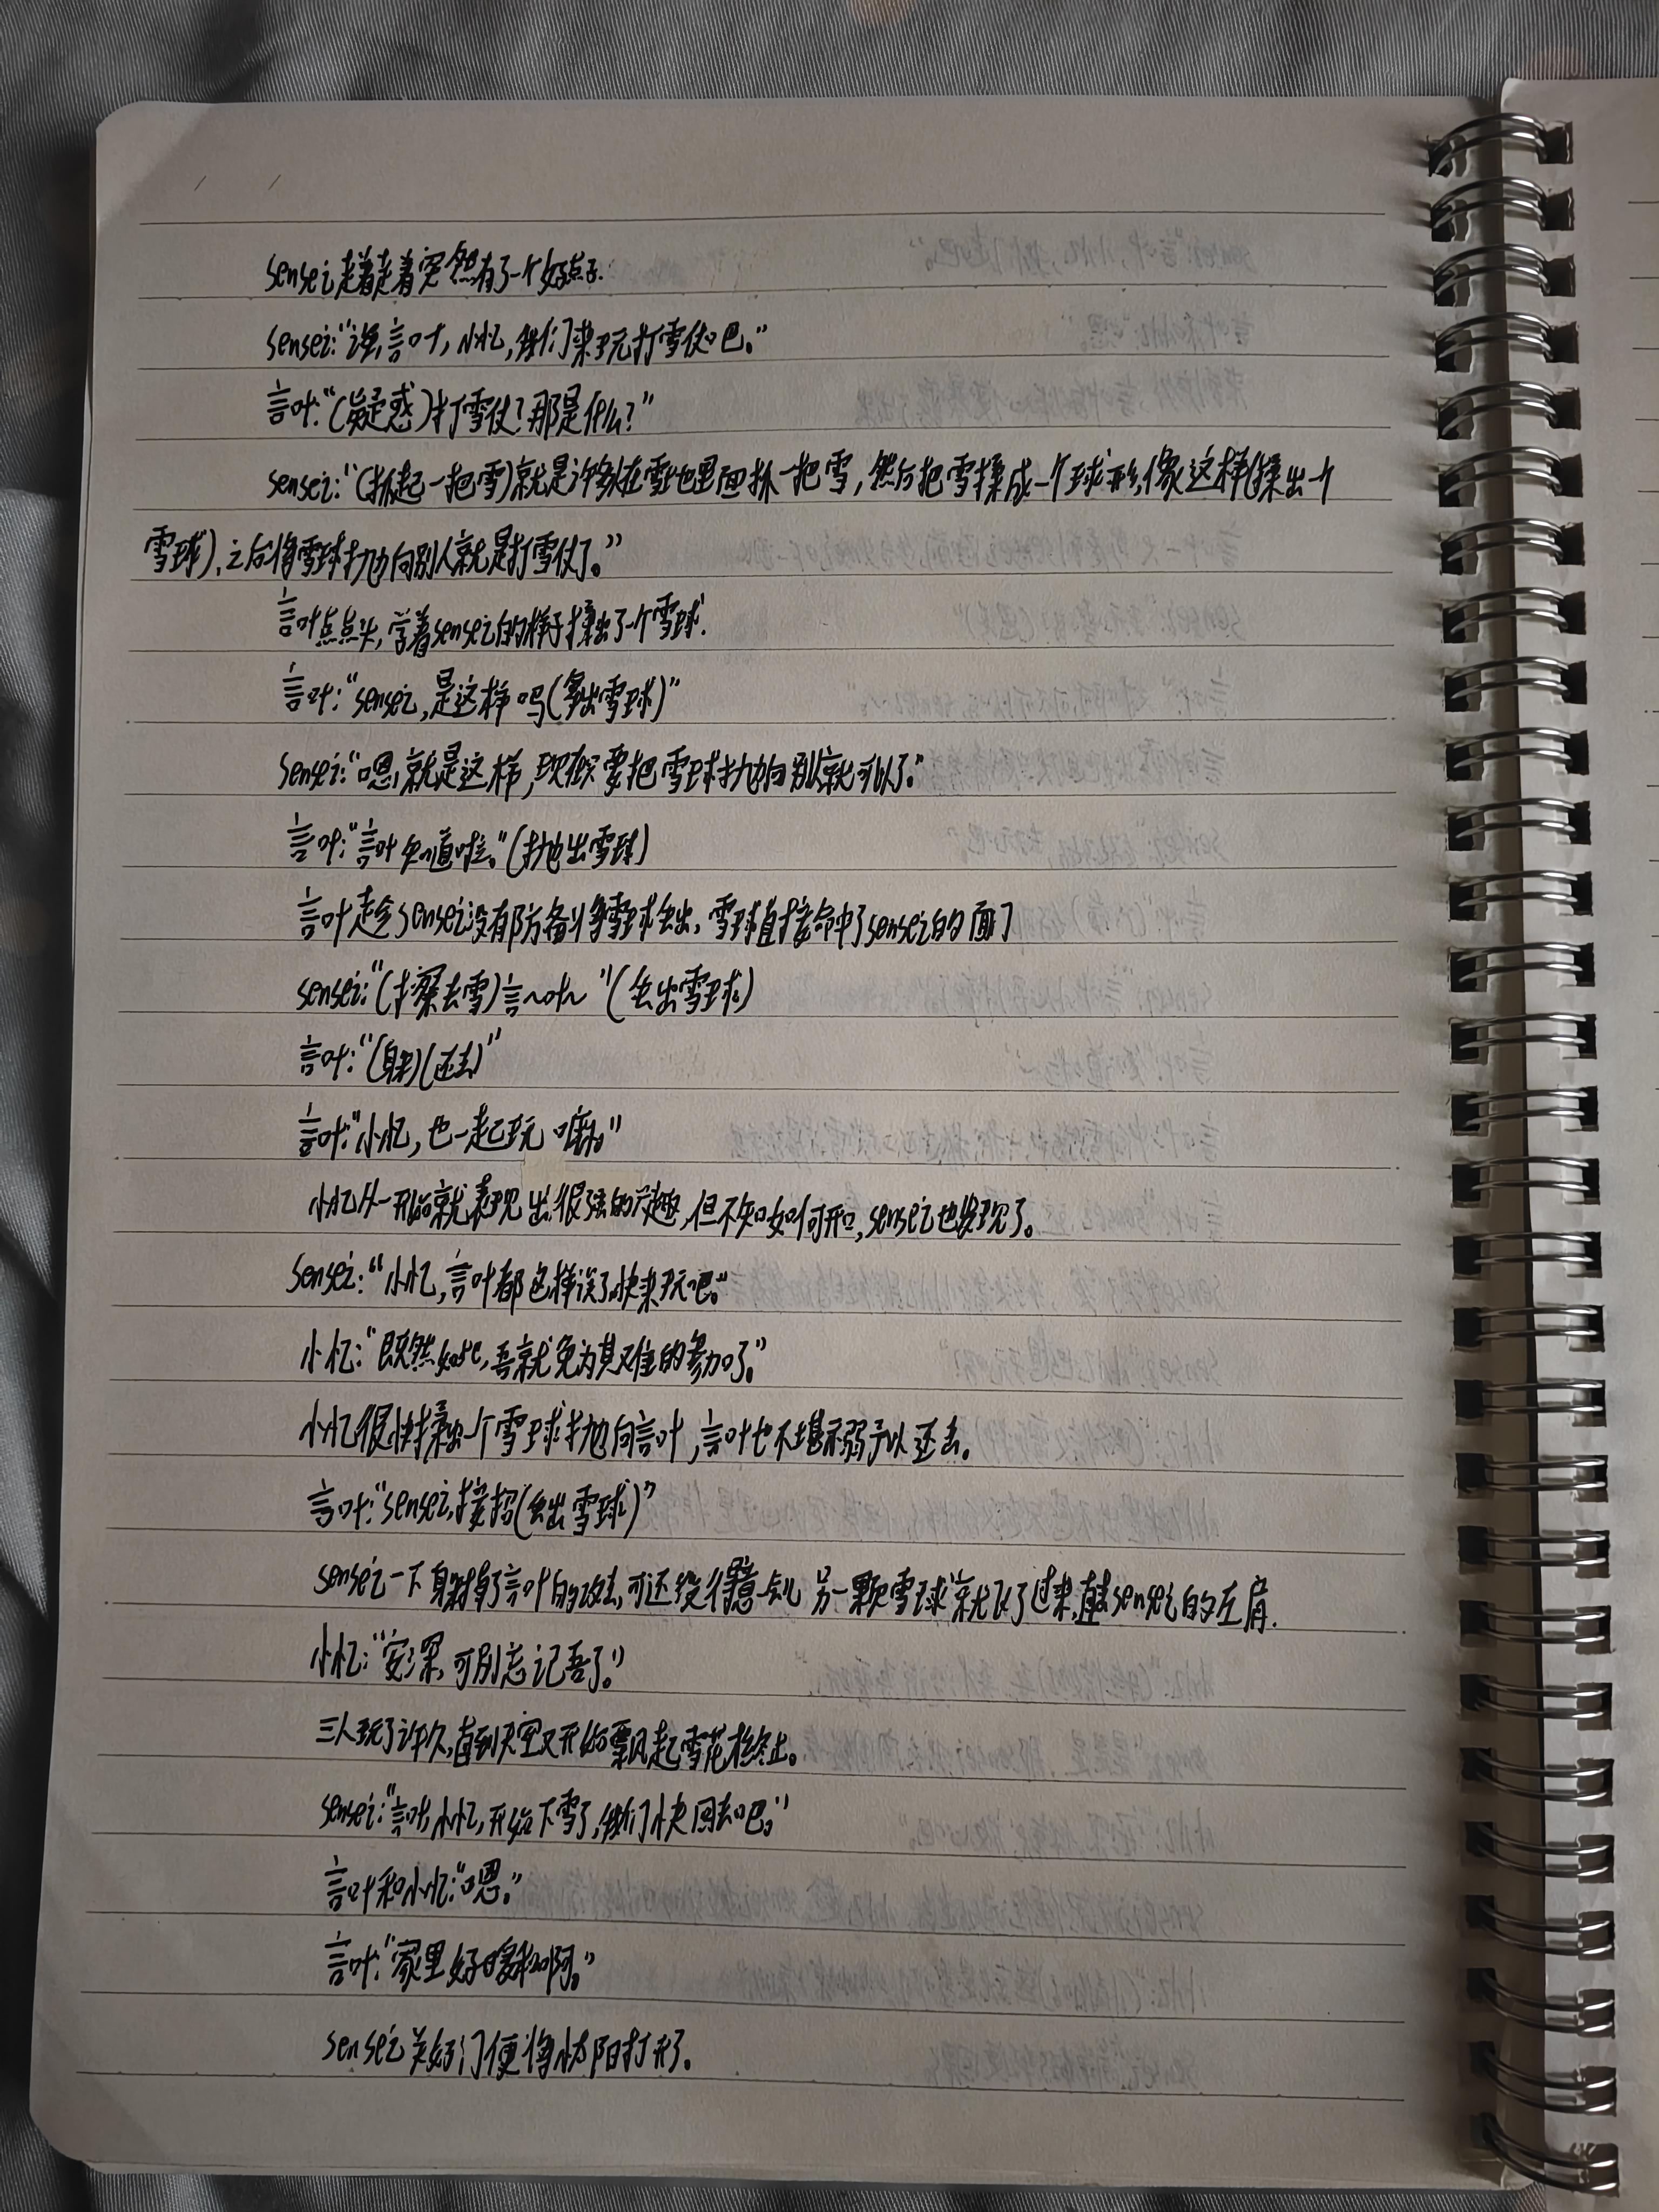 sensei走着走着突然有了一个好点子.
sensei:“诶,言叶,小忆,我们来玩打雪仗吧。”
言叶:“(疑惑)打雪仗?那是什么?”
sensei:“(抓起一把雪)就是许多人在雪地里面抓一把雪,然后把雪揉成一个球形,像这样(揉出一个
雪球),之后将雪球抛向别人就是打雪仗了。”
言叶点点头,学着sensei的样子揉出了一个雪球.
言叶:“sensei,是这样吗(拿出雪球)”
sensei:“嗯,就是这样,现在只要把雪球抛向别人就可以了。”
言叶:“言叶知道啦。”(抛出雪球)
言叶趁sensei没有防备将雪球丢出,雪球直接命中了sensei的面门
sensei:“(擦去雪)言~叶~”(丢出雪球)
言叶:“(躲)(还击)”
言叶:“小忆,也一起玩嘛。”
小忆从一开始就表现出很强的兴趣,但不知如何开口,sensei也发现了。
sensei:“小忆,言叶都这样说了,快来玩吧。”
小忆:“既然如此,吾就免为其难的参加了。”
小忆很快揉出一个雪球抛向言叶,言叶也不堪示弱予以还击。
言叶:“sensei,接招(丢出雪球)”
sensei一下身躲掉了言叶的攻击,可还没得意一会儿另一颗雪球就飞了过来,直击sensei的左肩.
小忆:“安深,可别忘记吾了。”
三人玩了许久,直到天空又开始飘起雪花才终止。
sensei:“言叶,小忆,开始下雪了,我们快回去吧。”
言叶和小忆:“嗯。”
言叶:“家里好暖和啊。”
sensei关好门便将太阳打开了.